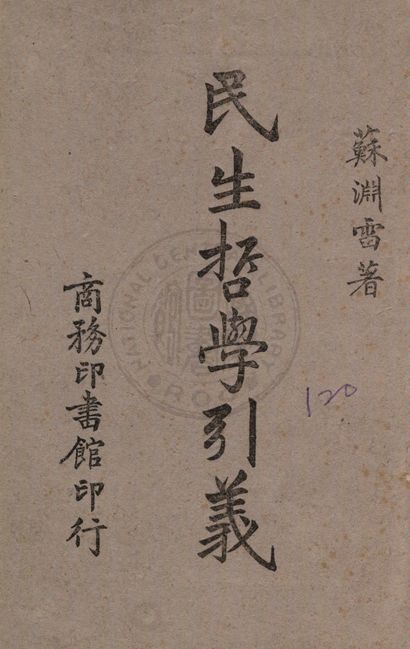 蘇淵雷著
民生哲學引義
商務印書館印行
120
NATIONAL CENTRAL LIBRARY